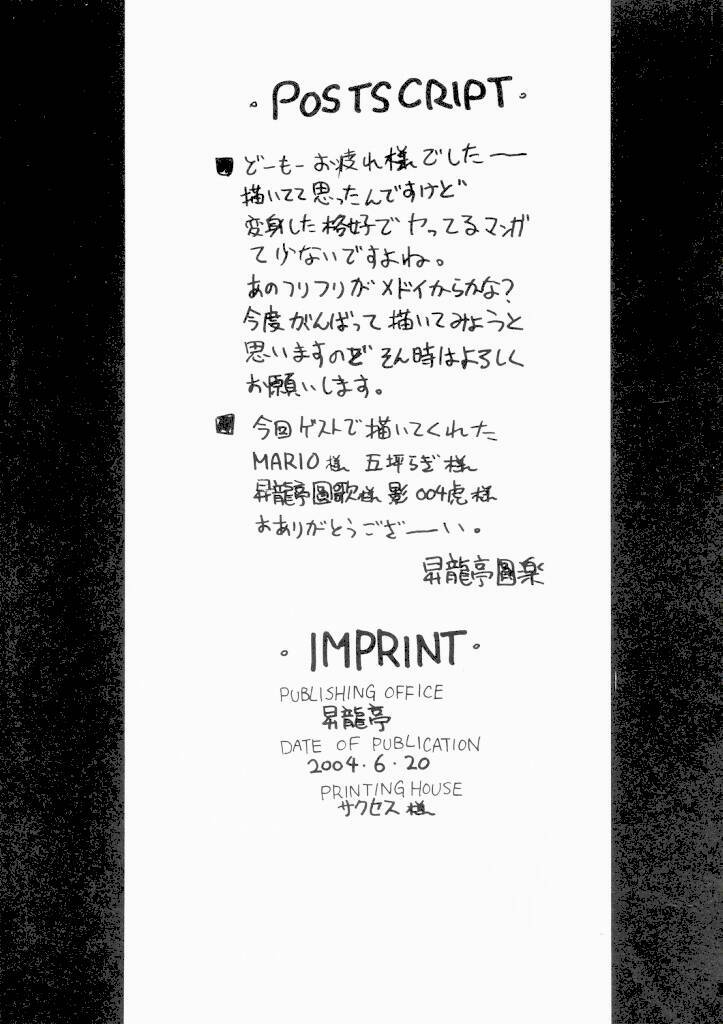 ・POSTSCRIPT・
■どーもー お疲れ様でしたー
描いてて思ったんですけど
変身した格好でヤってるマンガ
て少ないですよね。
あのフリフリがメドイからかな?
今度がんばって描いてみようと
思いますのど そん時はよろしく
お願いします。
■今回ゲストで描いてくれた
MARIO様 五坪らぎ様
昇龍亭圓歌様 影004虎様
おありがとうござーい。
昇龍亭圓楽
・IMPRINT・
PUBLISHING OFFICE
昇龍亭
DATE OF PUBLICATION
2004・6・20
PRINTING HOUSE
サクセス様